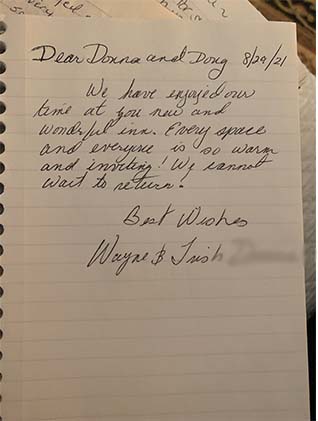 Dear Donna and Doug 8/29/21
We have enjoyed our
time at you new and
wonderful inn. Every space
and everyone is so warm
and inviting! We cannot
wait to return.
Best Wishes
Wayne & Trish